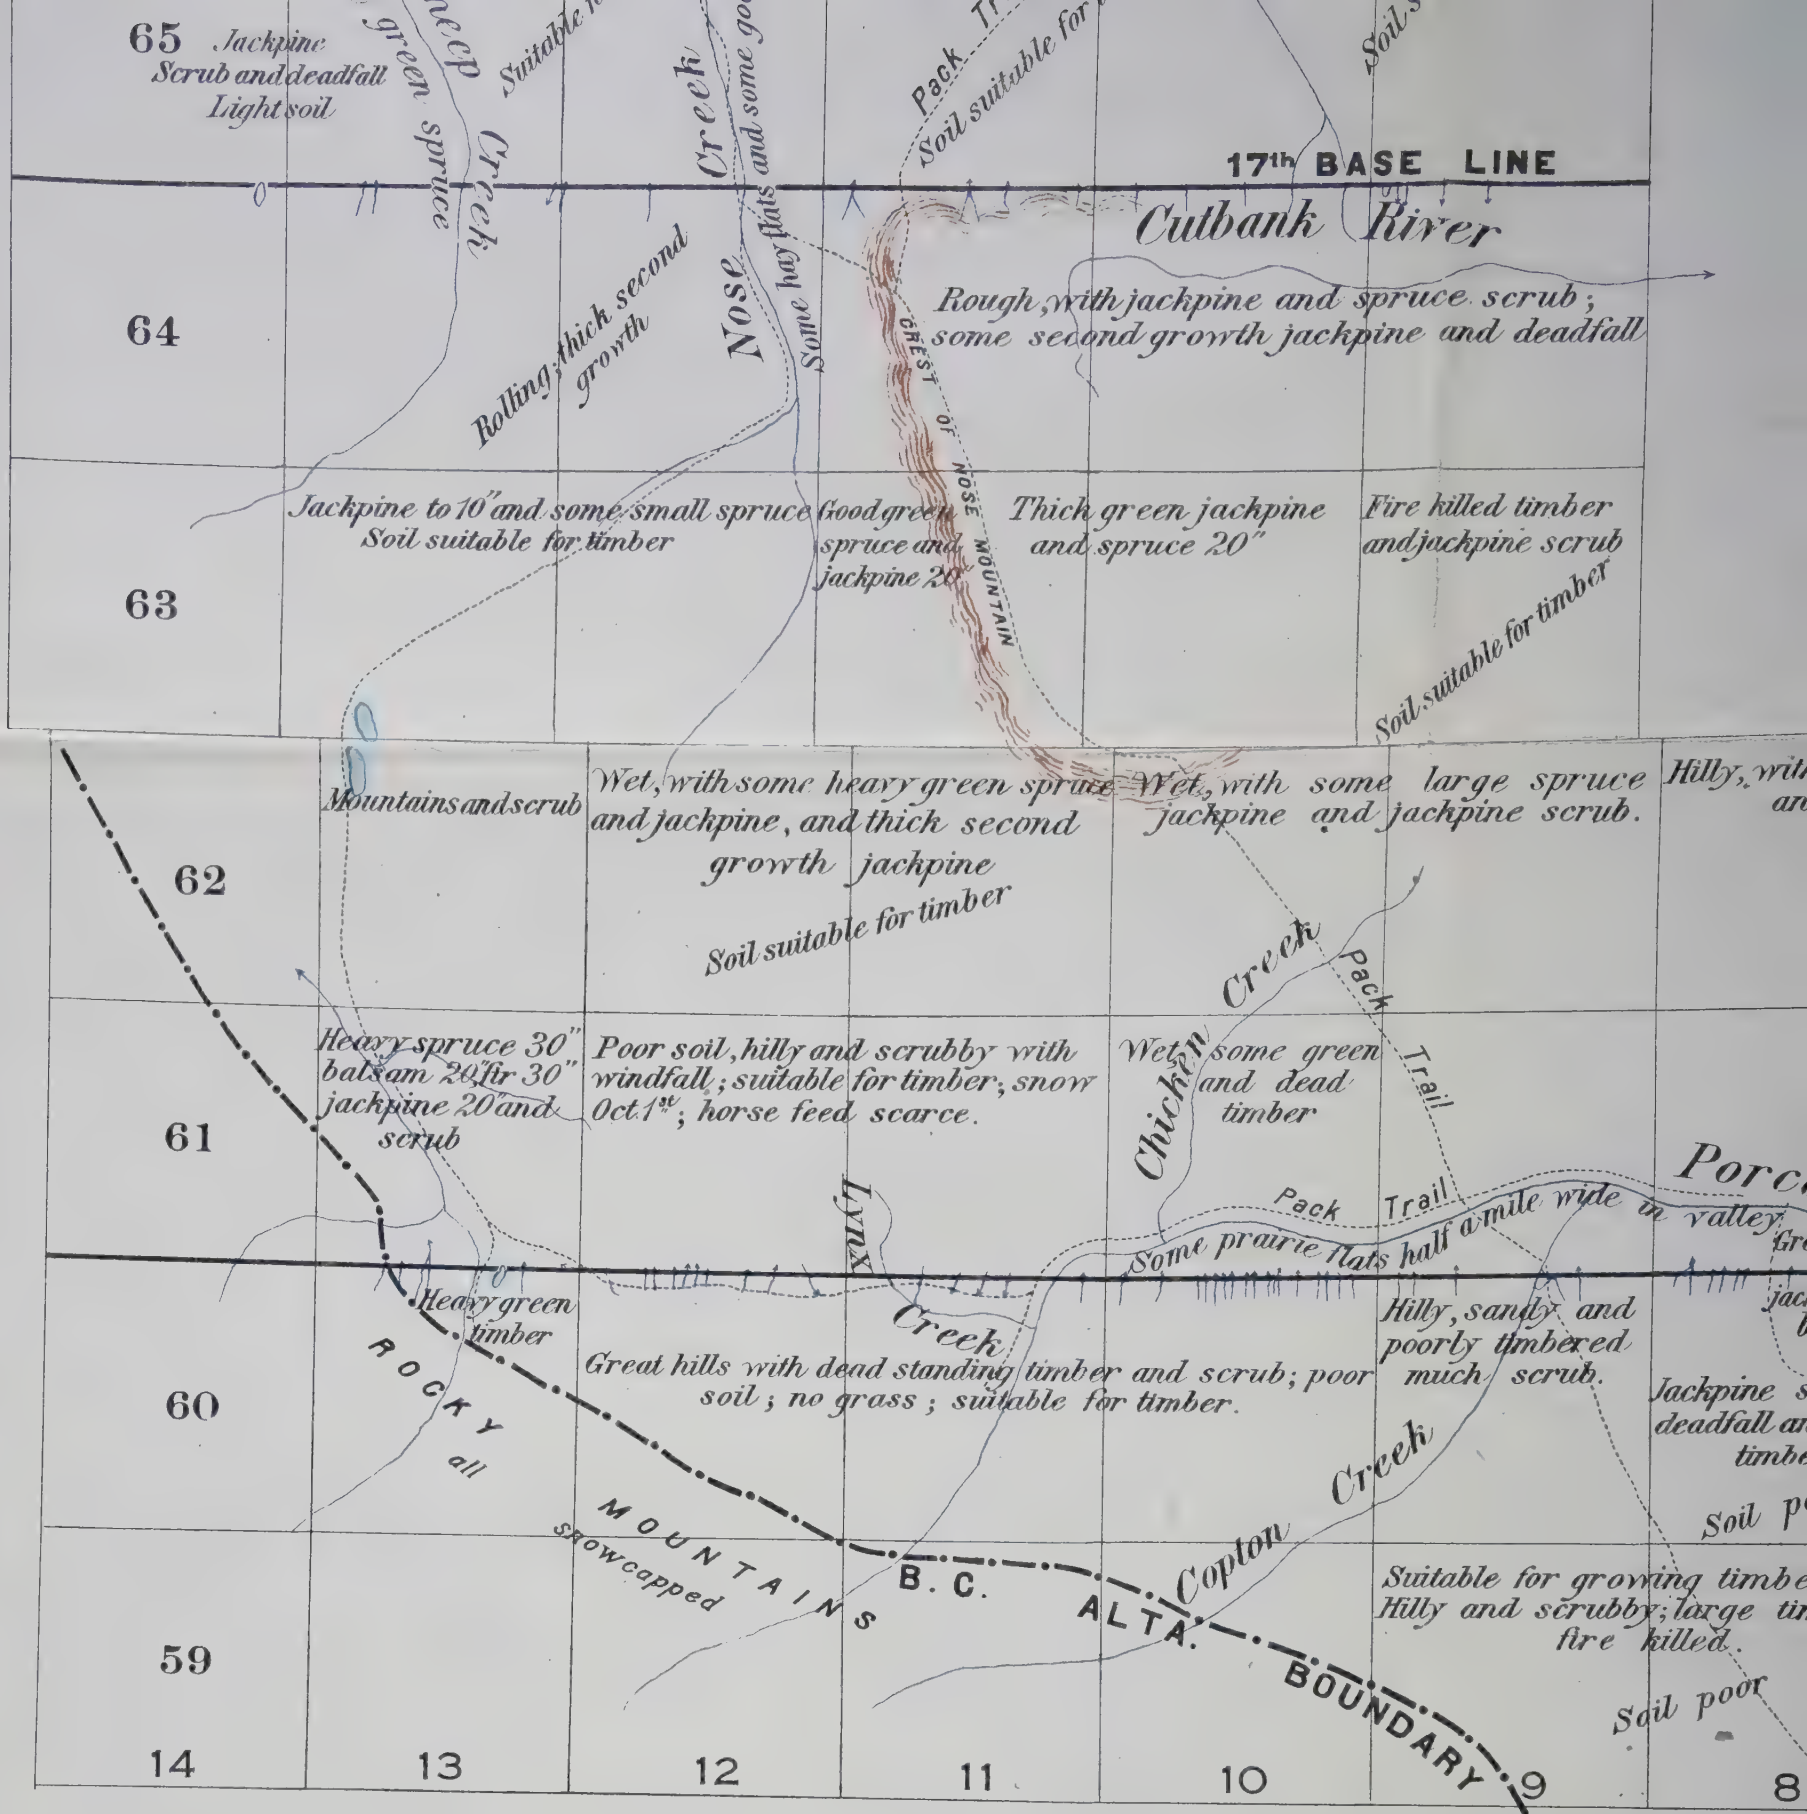 65 Jackpine
Scrub and deadfall
Light soil
green spruce
Creek
Suitable
Nose Creek
Some hay flats and some
Pack
Soil suitable for
Soil
17th BASE LINE
Cutbank River
64
Rolling, thick second
growth
Rough, with jackpine and spruce scrub;
some second growth jackpine and deadfall
CREST OF NOSE MOUNTAIN
63
Jackpine to 10" and some small spruce
Soil suitable for timber
Good green
spruce and
jackpine 20"
Thick green jackpine
and spruce 20"
Fire killed timber
and jackpine scrub
Soil suitable for timber
62
Mountains and scrub
Wet, with some heavy green spruce
and jackpine, and thick second
growth jackpine
Soil suitable for timber
Wet, with some large spruce
jackpine and jackpine scrub.
Hilly, with
Chicken Creek
Pack Trail
61
Heavy spruce 30"
balsam 20", fir 30"
jackpine 20" and
scrub
Poor soil, hilly and scrubby with
windfall; suitable for timber; snow
Oct. 1st; horse feed scarce.
Wet, some green
and dead
timber
Pack Trail
Some prairie flats half a mile wide in valley.
Lynx Creek
60
Heavy green
timber
Great hills with dead standing timber and scrub; poor
soil; no grass; suitable for timber.
Hilly, sandy and
poorly timbered
much scrub.
Jackpine
deadfall
Soil
Copton Creek
ROCKY MOUNTAINS
all snowcapped
B.C.
ALTA.
BOUNDARY
59
Suitable for growing
Hilly and scrubby; large
fire killed.
Soil poor
14 13 12 11 10 9 8